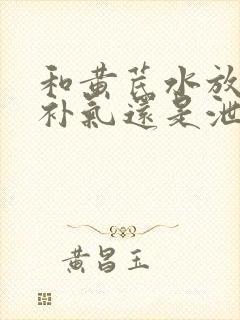 和黄芪水放
补气還是泄
黄昌玉